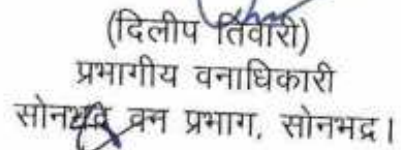 (दिलीप तिवारी)
प्रभागीय वनाधिकारी
सोनभद्र वन प्रभाग, सोनभद्र।